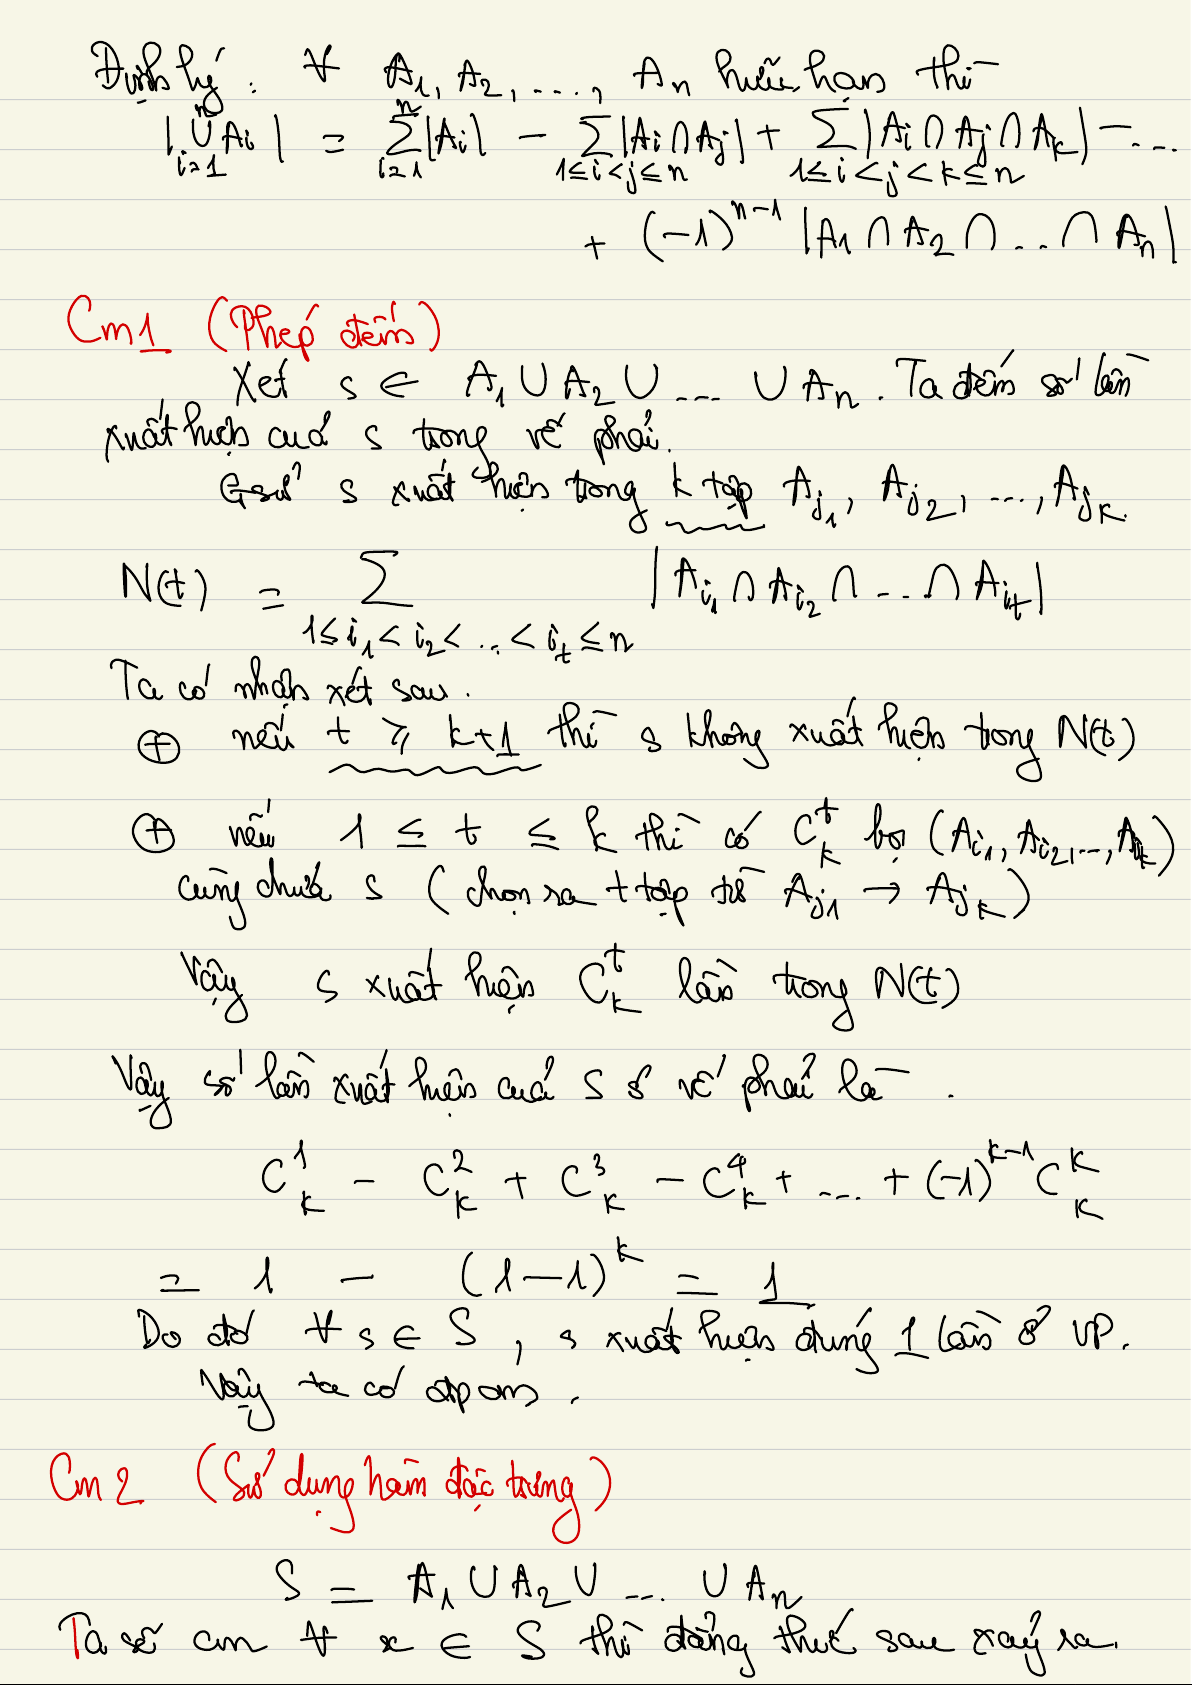 Định lý: ∀ A₁, A₂, ...., Aₙ hữu hạn thì
|⋃ᵢ₌₁ⁿ Aᵢ| = ∑ᵢ₌₁ⁿ |Aᵢ| − ∑_{1≤i<j≤n} |Aᵢ ∩ Aⱼ| + ∑_{1≤i<j<k≤n} |Aᵢ ∩ Aⱼ ∩ Aₖ| − ...
+ (−1)ⁿ⁻¹ |A₁ ∩ A₂ ∩ ... ∩ Aₙ|
Cm1 (Phép đếm)
Xét s ∈ A₁ ∪ A₂ ∪ .... ∪ Aₙ. Ta đếm số lần
xuất hiện của s trong vế phải.
Gsử s xuất hiện trong k tập A_{j₁}, A_{j₂}, ..., A_{jₖ}.
N(t) = ∑_{1≤i₁<i₂<...<iₜ≤n} |A_{i₁} ∩ A_{i₂} ∩ ... ∩ A_{iₜ}|
Ta có nhận xét sau.
⊕ nếu t ⩾ k+1 thì s không xuất hiện trong N(t)
⊕ nếu 1 ≤ t ≤ k thì có C_k^t bộ (A_{i₁}, A_{i₂}, ..., A_{iₖ})
cùng chứa s (chọn ra t tập từ A_{j₁} → A_{jₖ})
Vậy s xuất hiện C_k^t lần trong N(t)
Vậy số lần xuất hiện của s ở vế phải là .
C_k^1 − C_k^2 + C_k^3 − C_k^4 + .... + (−1)^{k−1} C_k^k
= 1 − (1−1)^k = 1
Do đó ∀ s ∈ S, s xuất hiện đúng 1 lần ở VP.
Vậy ta có đpcm.
Cm2 (Sử dụng hàm đặc trưng)
S = A₁ ∪ A₂ ∪ .... ∪ Aₙ
Ta sẽ cm ∀ x ∈ S thì đẳng thức sau xảy ra.